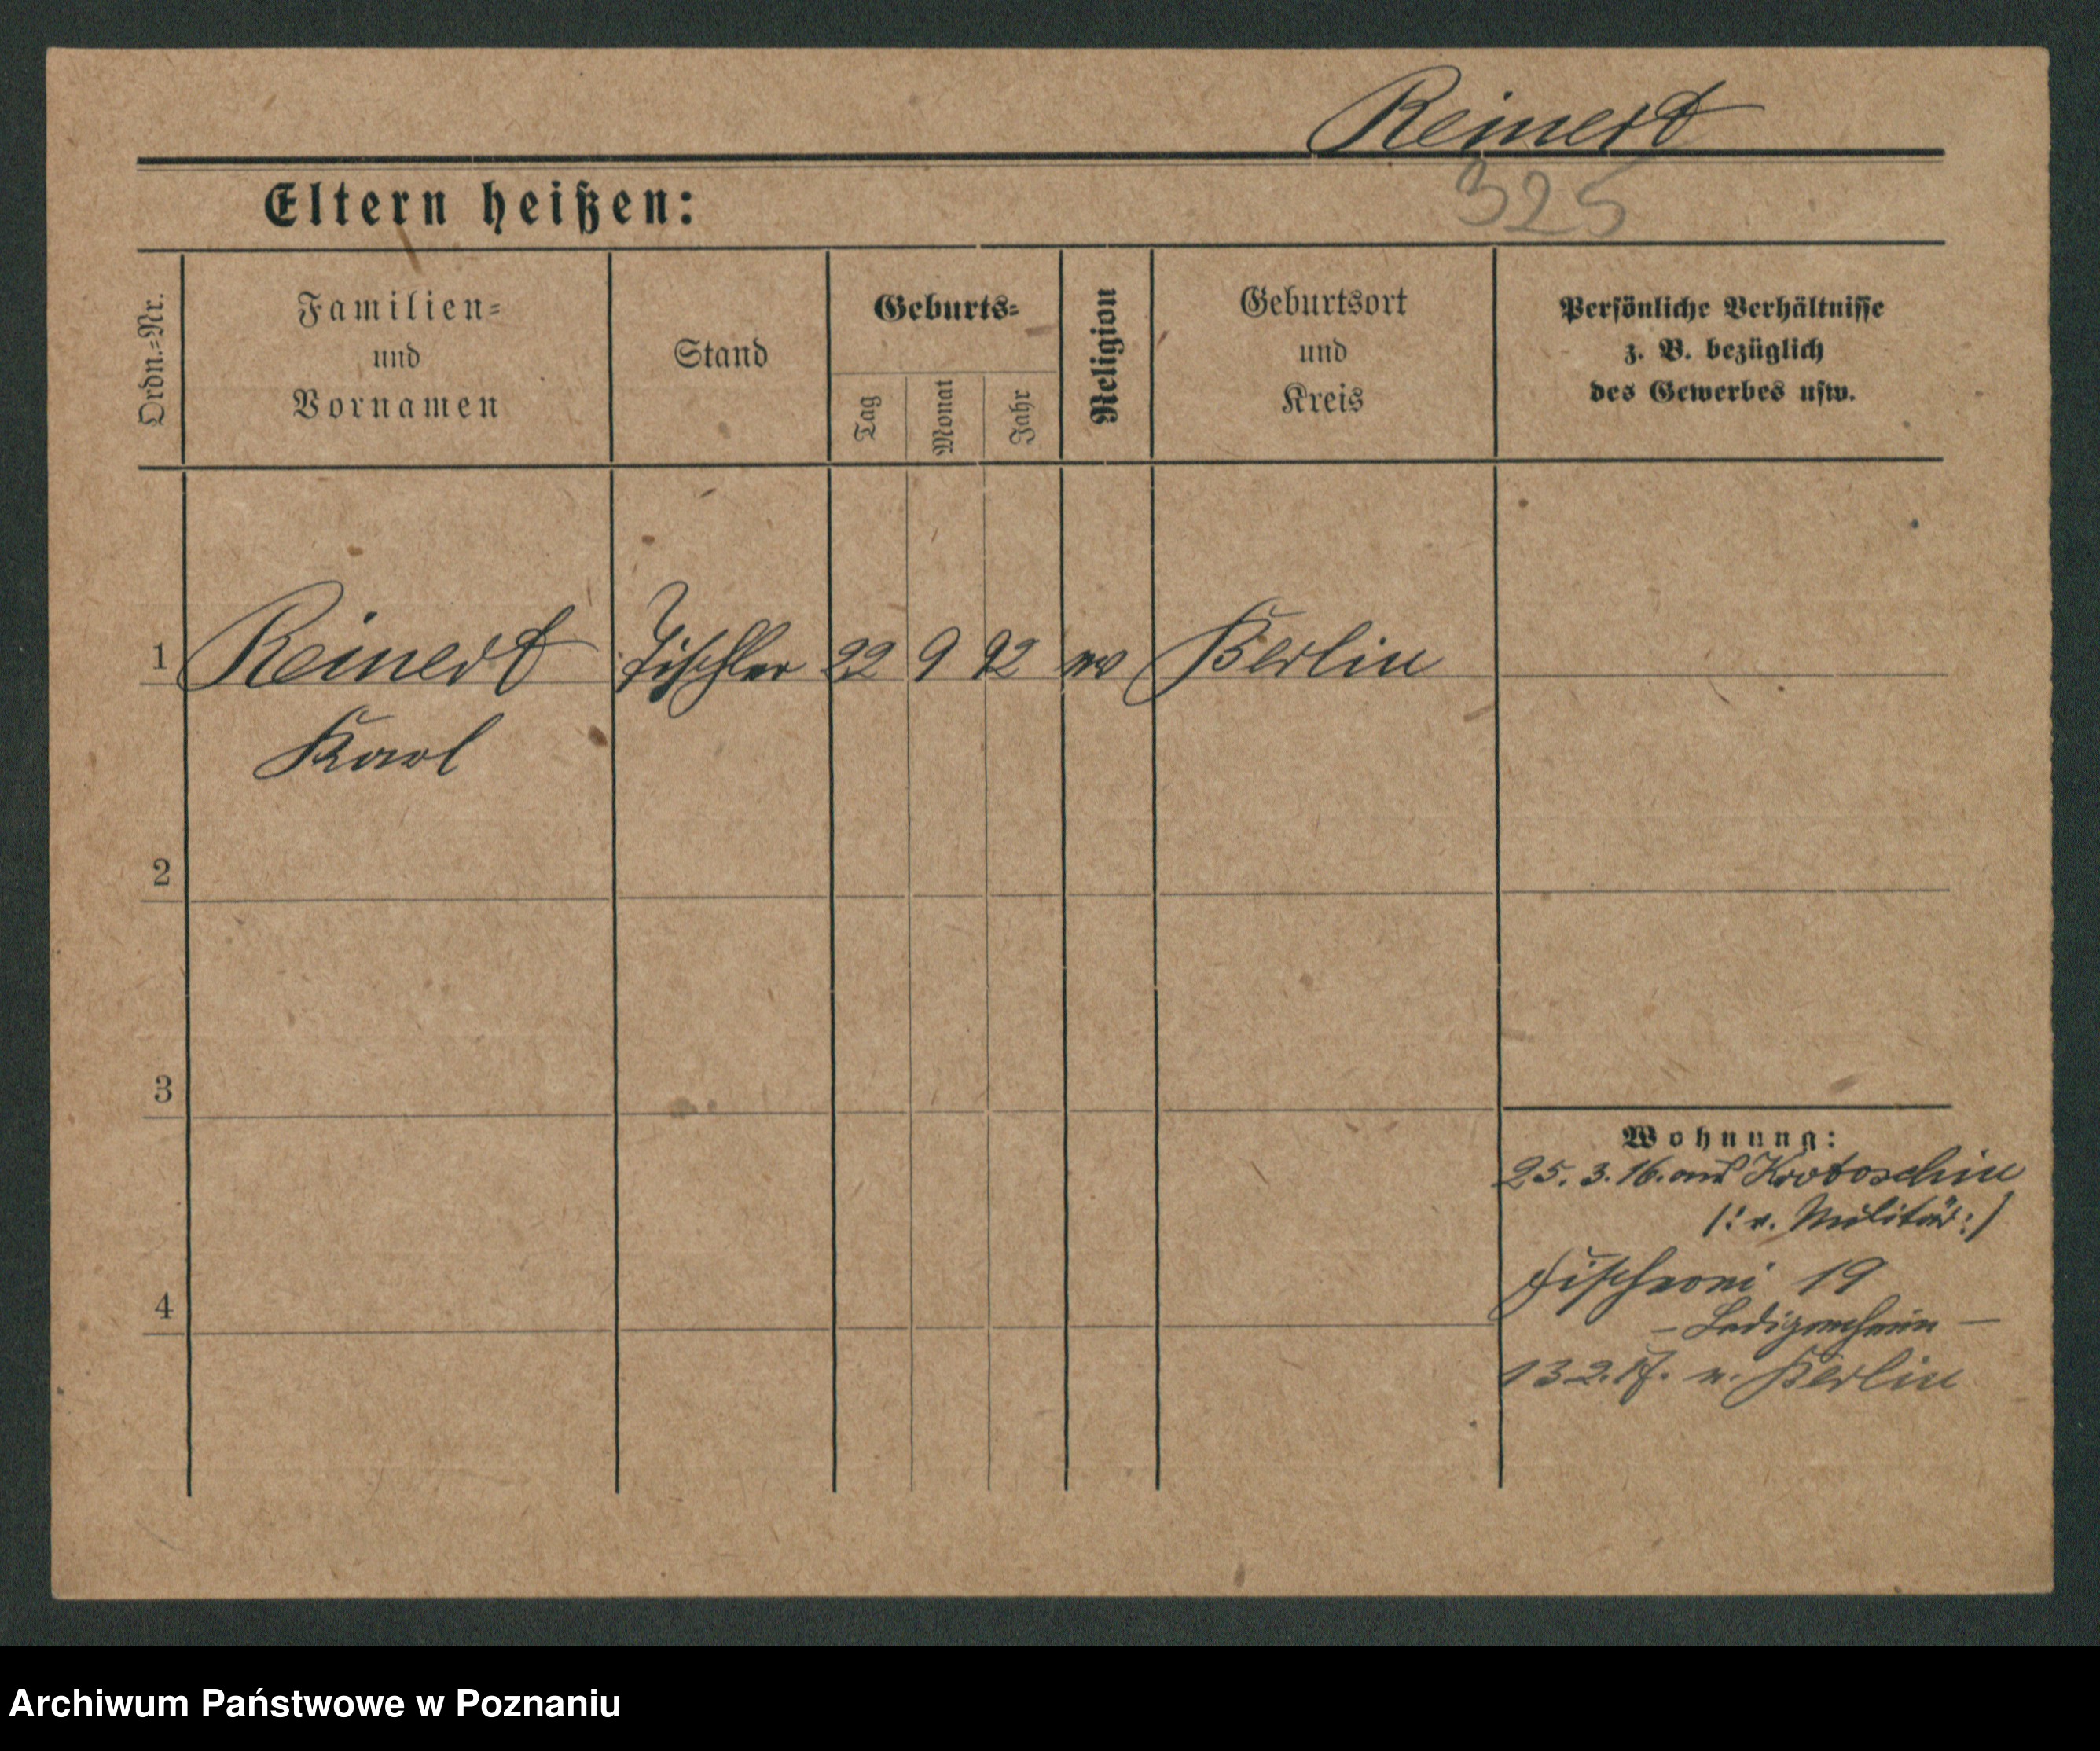 Reinert
Eltern heißen:
325
Ordn.-Nr.
Familien-
und
Vornamen
Stand
Geburts-
Tag
Monat
Jahr
Religion
Geburtsort
und
Kreis
Persönliche Verhältnisse
z. B. bezüglich
des Gewerbes usw.
1 Reinert Tischler 22 9 92 ev Berlin
Karl
2
3
4
Wohnung:
25. 3. 16. aus Krotoschin
(: v. Militär :)
Fischerei 19
- Ledigenheim -
13.2.17. n. Berlin
Archiwum Państwowe w Poznaniu